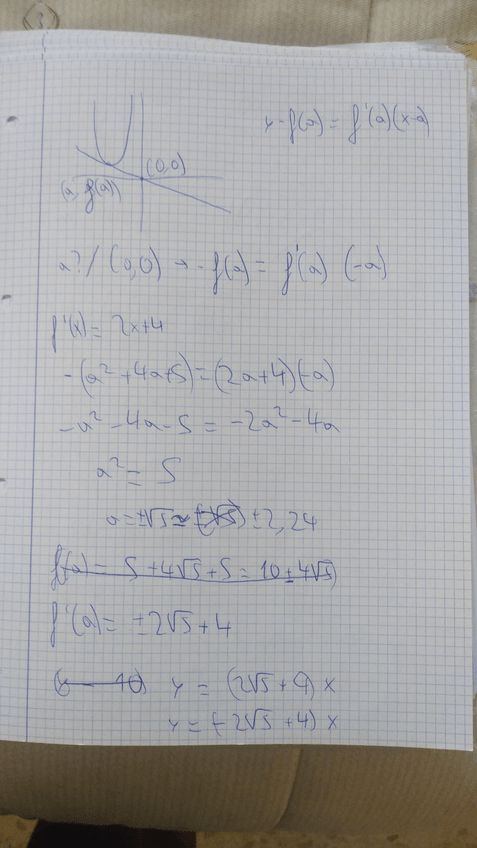 y-f(a) = f'(a)(x-a)
(0,0)
(a, f(a))
a? / (0,0) → -f(a) = f'(a) (-a)
f'(x) = 2x+4
-(a²+4a+5) = (2a+4)(-a)
-a²-4a-5 = -2a²-4a
a² = 5
a = ±√5 ≃ ±2,24
f(a) = 5+4√5+5 = 10±4√5
f'(a) = ±2√5+4
y = (2√5+4) x
y = (-2√5+4) x